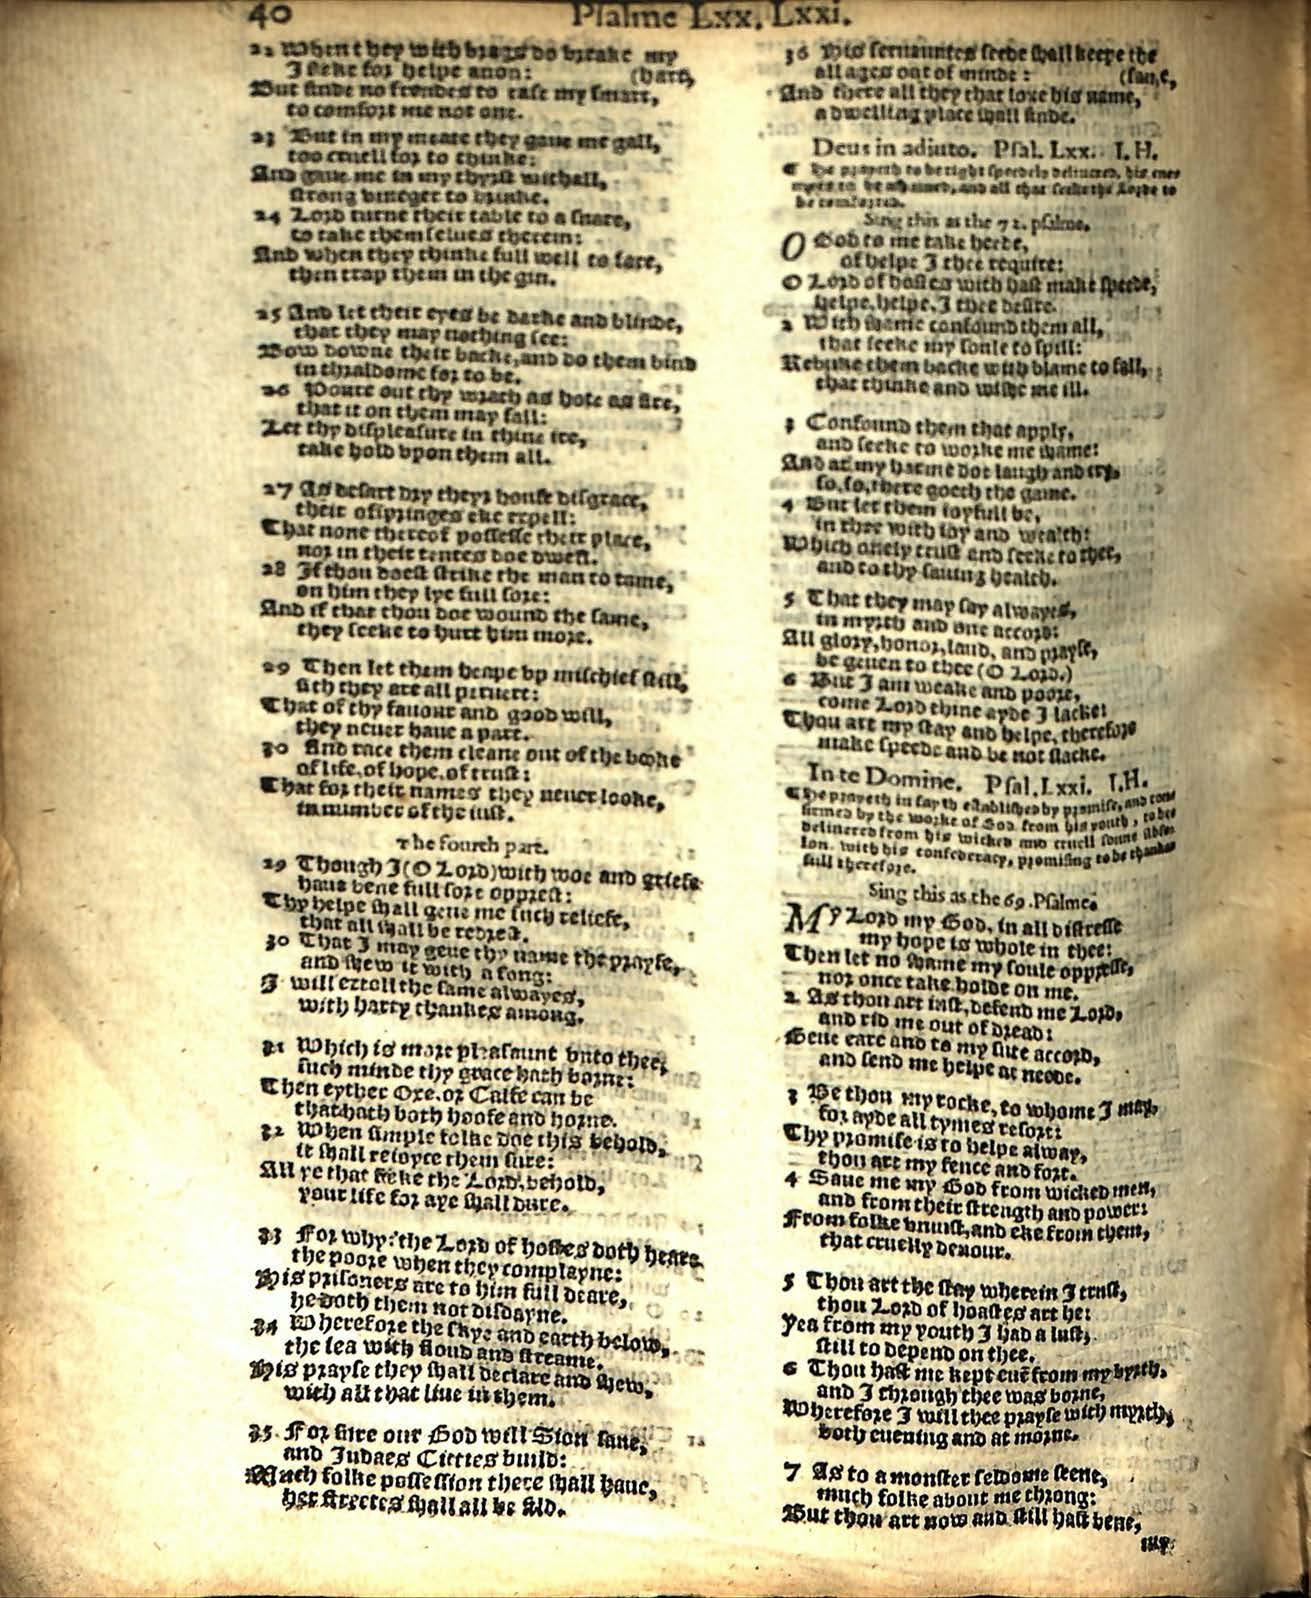 40
Psalme Lxx. Lxxi.
22 When they with brags do breake my
I seke for helpe anon: (hart,
But finde no frendes to ease my smart,
to comfort me not one.
23 But in my meate they gaue me gall,
too cruell for to thinke:
And gaue me in my thyrst withall,
strong vineger to drinke.
24 Lord turne their table to a snare,
to take themselues therein:
And when they thinke full well to fare,
then trap them in the gin.
25 And let their eyes be darke and blinde,
that they may nothing see:
Bow downe their backe, and do them bind
in thraldome for to be.
26 Poure out thy wrath as hote as fire,
that it on them may fall:
Let thy displeasure in thine ire,
take hold vpon them all.
27 As desart dry theyr house disgrace,
their ofsprings eke expell:
That none thereof possesse their place,
nor in their tentes doe dwell.
28 If thou doest strike the man to tame,
on him they lye full sore:
And if that thou doe wound the same,
they seeke to hurt him more.
29 Then let them heape vp mischief still,
sith they are all peruert:
That of thy fauour and good will,
they neuer haue a part.
30 And race them cleane out of the booke
of life, of hope, of trust:
That for their names they neuer looke,
in number of the iust.
The fourth part.
29 Though I (O Lord) with woe and griefe
haue bene full sore opprest:
Thy helpe shall geue me such reliefe,
that all shall be redrest.
30 That I may geue thy name the prayse,
and shew it with a song:
I will extoll the same alwayes,
with harty thankes among.
31 Which is more pleasaunt vnto thee,
such minde thy grace hath borne:
Then eyther Oxe, or Calfe can be
that hath both hoofe and horne.
32 When simple folke doe this behold,
it shall reioyce them sure:
All ye that seke the Lord, behold,
your life for aye shall dure.
33 For why? the Lord of hostes doth heare
the poore when they complayne:
His prisoners are to him full deare,
he doth them not disdayne.
34 Wherefore the skye and earth below,
the sea with floud and streame.
His prayse they shall declare and shew,
with all that liue in them.
35 For sure our God will Sion saue,
and Iudaes Citties build:
Much folke possession there shall haue,
her streetes shall all be fild.
36 His seruauntes seede shall keepe the
all ages out of minde: (same,
And there all they that loue his name,
a dwelling place shall finde.
Deus in adiuto. Psal. Lxx. I. H.
¶ He prayeth to be right speedely deliuered, his ene
myes to be ashamed, and all that seeke the Lorde to
be comforted.
Sing this as the 72. psalme.
O God to me take heede,
of helpe I thee require:
O Lord of hostes with hast make speede,
helpe, helpe, I thee desire.
2 With shame confound them all,
that seeke my soule to spill:
Rebuke them backe with blame to fall,
that thinke and wishe me ill.
3 Confound them that apply,
and seeke to worke me shame:
And at my harme doe laugh and cry,
so, so, there goeth the game.
4 But let them ioyfull be,
in thee with ioy and wealth:
Which onely trust and seeke to thee,
and to thy sauing health.
5 That they may say alwayes,
in myrth and one accord:
All glory, honor, laud, and prayse,
be geuen to thee (O Lord.)
6 But I am weake and poore,
come Lord thine ayde I lacke:
Thou art my stay and helpe, therefore
make speede and be not slacke.
In te Domine. Psal. Lxxi. I. H.
¶ He prayeth in fayth established by promise, and con
firmed by the worke of God from his youth, to bee
deliuered from his wicked and cruell sonne Absa
lon, with his confederacy, promising to be thanke
full therefore.
Sing this as the 69. Psalme.
MY Lord my God, in all distresse
my hope is whole in thee:
Then let no shame my soule oppresse,
nor once take holde on me.
2. As thou art iust, defend me Lord,
and rid me out of dread:
Geue eare and to my sute accord,
and send me helpe at neede.
3 Be thou my rocke, to whome I may,
for ayde all tymes resort:
Thy promise is to helpe alway,
thou art my fence and fort.
4 Saue me my God from wicked men,
and from their strength and power:
From folke vniust, and eke from them,
that cruelly deuour.
5 Thou art the stay wherein I trust,
thou Lord of hoastes art he:
Yea from my youth I had a lust,
still to depend on thee.
6 Thou hast me kept euē from my byrth,
and I through thee was borne,
Wherefore I will thee prayse with myrth,
both euening and at morne.
7 As to a monster seldome seene,
much folke about me throng:
But thou art now and still hast bene,
my